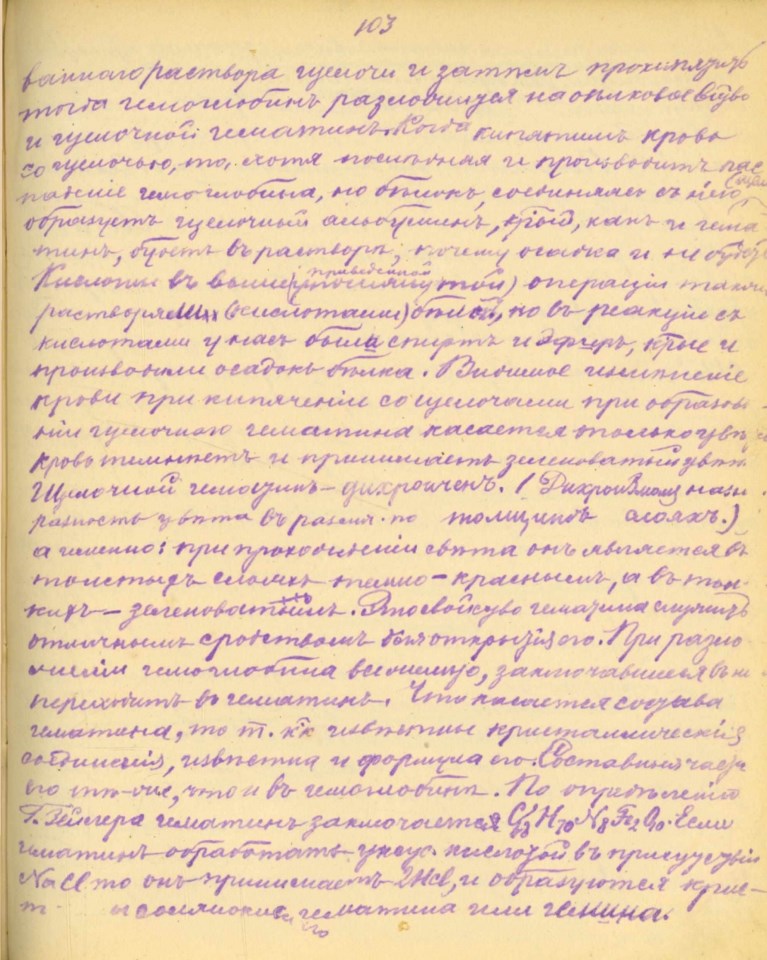 103
ваннаго раствора щелочи и затѣмъ прокипятить
тогда гемоглобинъ разложится на бѣлковое в-тво
и щелочной гематинъ. Когда кипятимъ кровь
со щелочью, то, хотя послѣдняя и производитъ рас
паденіе гемоглобина, но бѣлокъ, соединяясь съ нею
образуетъ щелочный альбуминъ, к-рый, какъ и гема
тинъ, будетъ въ растворѣ, почему осадка и не будетъ
приведенной
Кислоты въ выше операціи также
растворяли (кислотами) бѣлки, но въ реакціи съ
кислотами у насъ были спиртъ и эфиръ, к-рые и
производили осадокъ бѣлка. Видимое измѣненіе
крови при кипяченіи со щелочами при образова-
ніи щелочного гематина касается только цвѣта
кровь темнѣетъ и принимаетъ зеленоватый цвѣтъ
Щелочной гематинъ – дихроиченъ. (Дихроизмомъ назыв
разность цвѣта въ различ. по толщинѣ слояхъ.)
а именно: при прохожденіи свѣта онъ является въ
толстыхъ слояхъ темно-краснымъ, а въ тон-
кихъ – зеленоватымъ. Это свойство гематина служитъ
отличнымъ средствомъ для открытія его. При разло-
женіи гемоглобина все желѣзо, заключавшееся въ н
переходитъ въ гематинъ. Что касается состава
гематина, то т. к-к извѣстны кристаллическія
соединенія, извѣстна и формула его. Составныя части
его тѣ-же, что и въ гемоглобинѣ. По опредѣленію
Г. Зейлера гематинъ заключается C68 H70 N8 Fe2 O10. Если
гематинъ обработать уксус. кислотой въ присутствіи
NaCl то онъ принимаетъ 2HCl, и образуются крис-
т ы солянокислаго гематина или гемина.